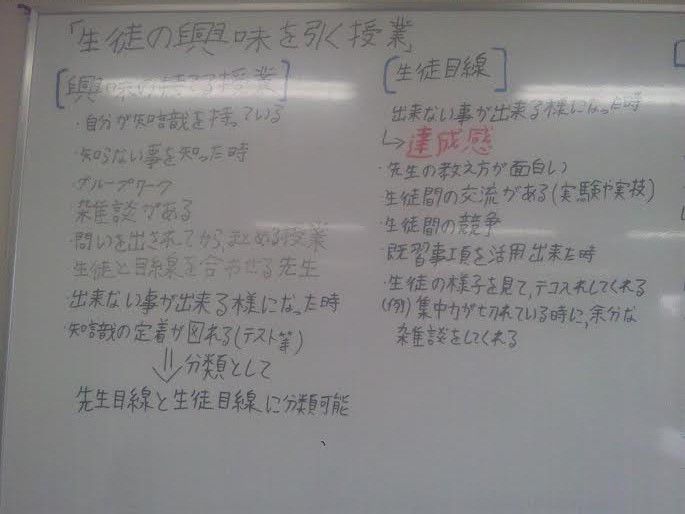 「生徒の興味を引く授業」
[興味の持てる授業]
・自分が知識を持っている
・知らない事を知った時
・グループワーク
・雑談がある
・問いを出されてから、まとめる授業
・生徒と目線を合わせる先生
・出来ない事が出来る様になった時
・知識の定着が図れる(テスト等)
⇓分類として
先生目線と生徒目線に分類可能
[生徒目線]
出来ない事が出来る様になった時
↳達成感
・先生の教え方が面白い
・生徒間の交流がある(実験や実技)
・生徒間の競争
・既習事項を活用出来た時
・生徒の様子を見て、テコ入れしてくれる
(例)集中力が切れている時に、余分な
雑談をしてくれる